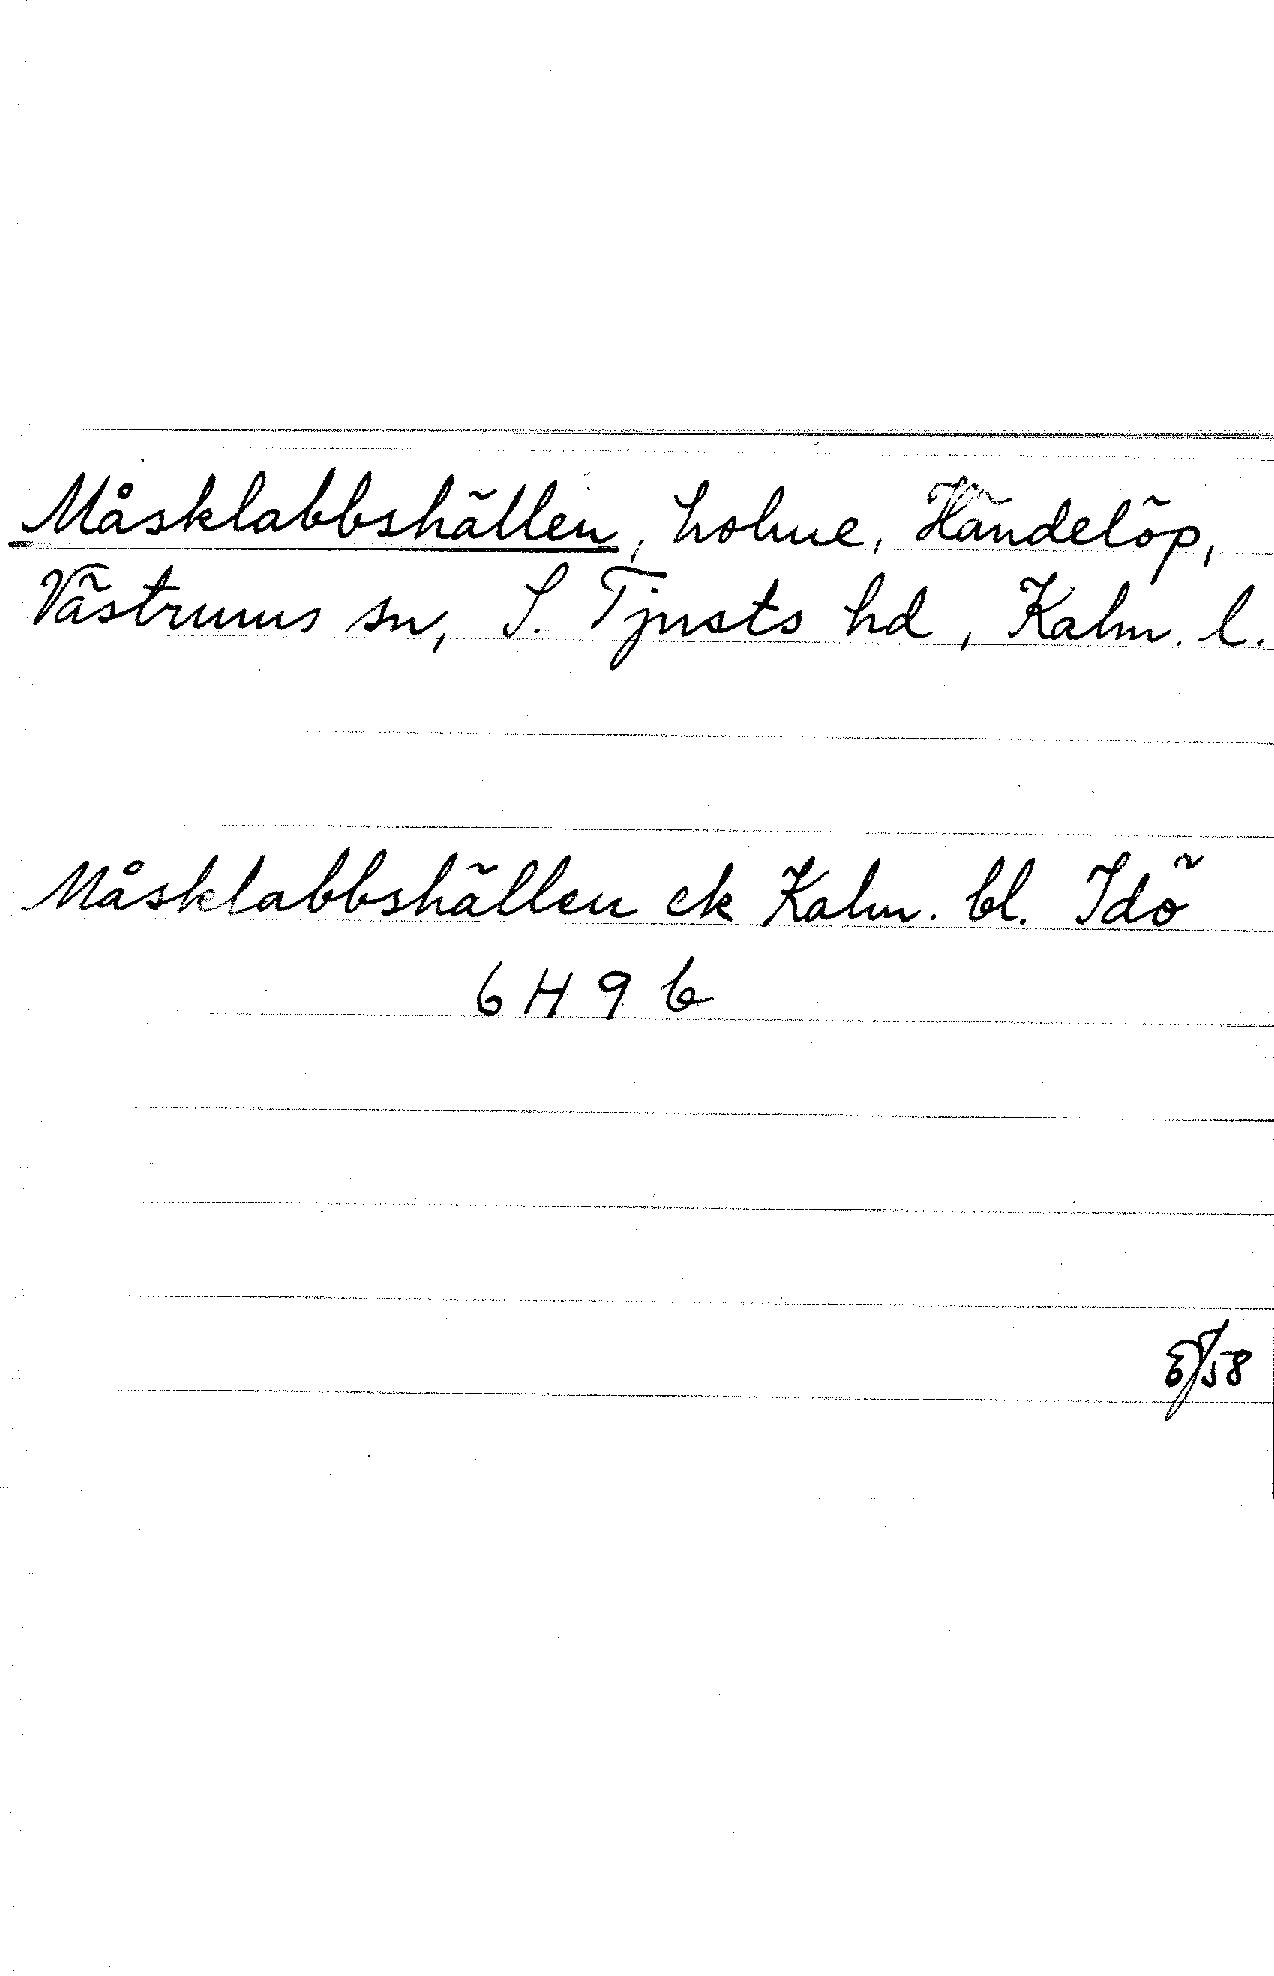 Måsklabbshällen, holme, Händelöp,
Västrums sn, S. Tjusts hd, Kalm. l.
Måsklabbshällen ek Kalm. bl. Idö
6 H 9 b